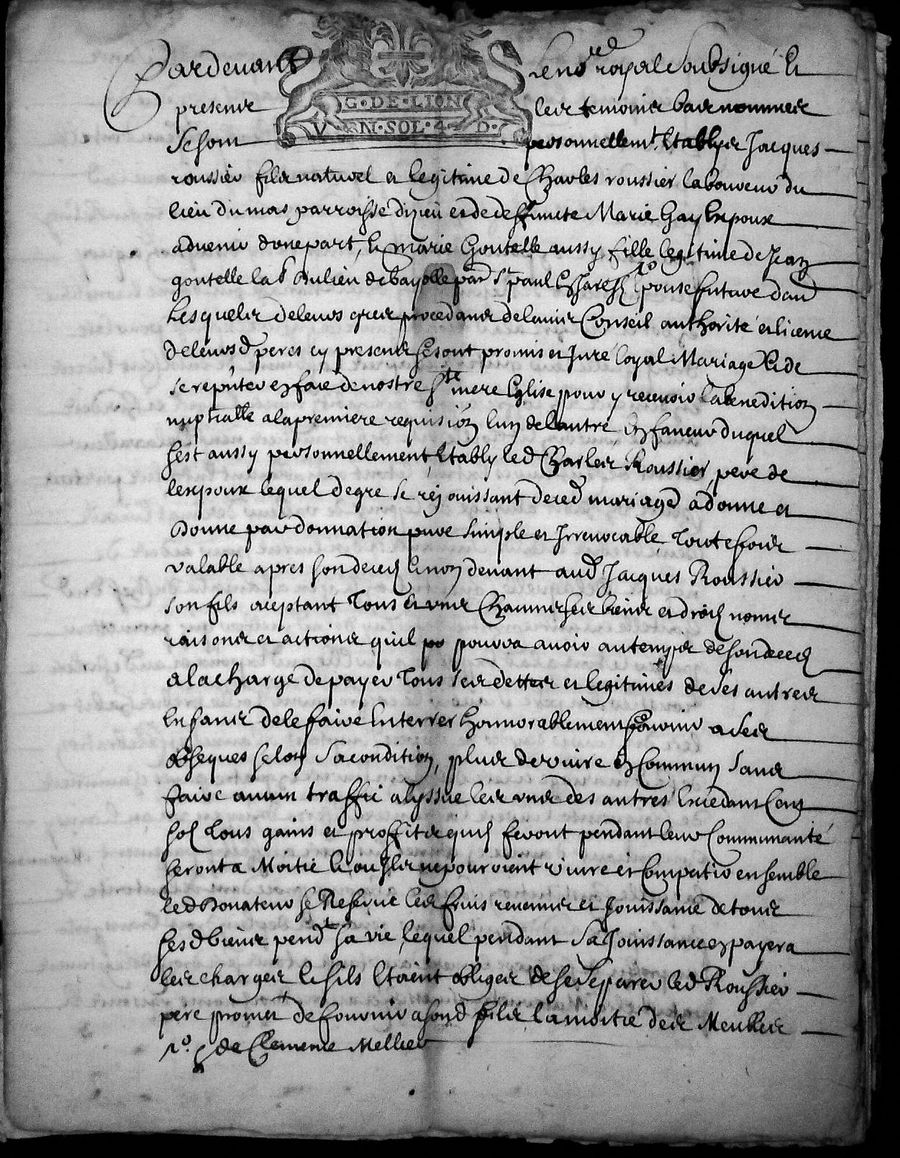 Pardevant le no.re royal soubsigné et
G·DE·LION
presence les temoins bas nommes
VN·SOL·4·D·
Se sont personnellem.t Etablys Jacques
roussier fils naturel et legitime de Charles roussier laboureur du
lieu du mas parroisse dizieu et de deffuncte Marie Gay Espoux
advenir d'une part, Et marie Goutelle aussy fille legitime de Jean
goutelle lab.r du lieu de bayolle par.s S.t paul En Jarest Epouse future d'au.
Lesquelles de leurs grés procedans de l'avis Conseil authorité et licence
de leurs d. peres cy presents se sont promis et Jure loyal Mariage Et de
se reputer En face de nostre S.te mere Eglise pour y recevoir la benedition
nuptialle a la premiere requisition l'un de l'autre En faveur duquel
sest aussy personnellement Etably led Charles Roussier pere de
lespoux lequel de gre se rejouissant deced mariage a donne et
Donne par donnation pure simple et Irrevocable Toutefois
valable apres son deces Et non devant aud Jacques Roussier
son fils aceptant Tous et uns Chaunes ses biens et droits noms
raisons et actions quil po pourra avoir au temps de son deces
a la charge de payer Tous ses dettes et legitimes de ses autres
Enfans de le faire Enterrer honnorablement fournir a ses
obseques selon sa condition, plus de vivre En Commun sans
faire aucun traffic a lyssue les uns des autres Excedant Cent
sols Tous gains et proffits quils feront pendant leur Communauté
seront a Moitié Et ou Ils ne pourroient vivre et Compatir ensemble
led Donateur se Reserve les fruis revenus et Jouissance de tous
sesd biens pend.t sa vie lequel pendant sa Jouissance En payera
les charges Et sils Etoient obliges de se separer led Roussier
pere promet de fournir a sond fils la moitie des Meubles
de Clemence Mellier